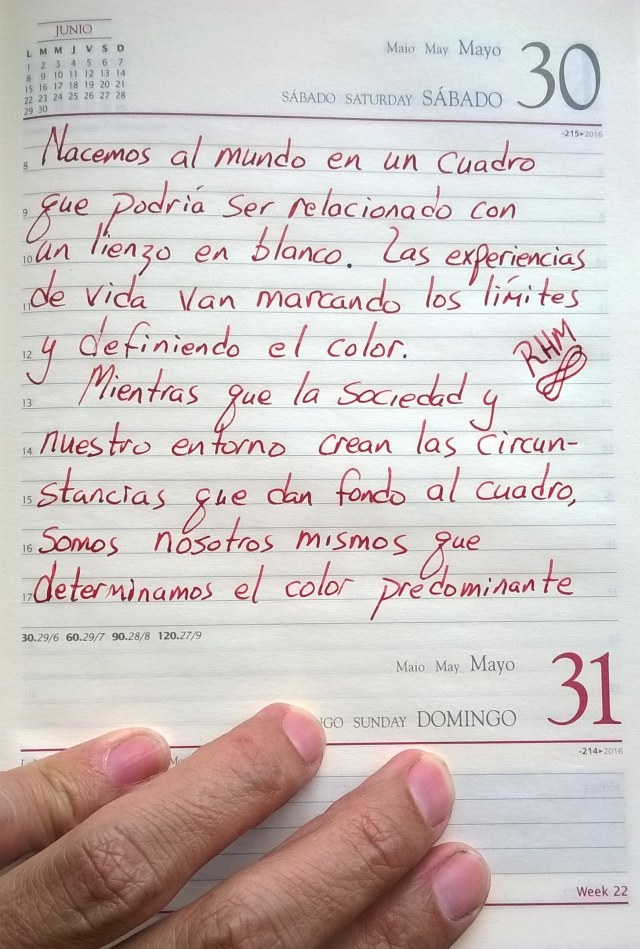 JUNIO
L M M J V S D
1 2 3 4 5 6 7
8 9 10 11 12 13 14
15 16 17 18 19 20 21
22 23 24 25 26 27 28
29 30
Maio May Mayo 30
SÁBADO SATURDAY SÁBADO
-215▸2016
8 Nacemos al mundo en un cuadro
9 que podriá ser relacionado con
10 un lienzo en blanco. Las experiencias
11 de vida van marcando los límites
12 y definiendo el color.
RHM
13 Mientras que la sociedad y
14 nuestro entorno crean las circun-
15 stancias que dan fondo al cuadro,
16 Somos nosotros mismos que
17 determinamos el color predominante
30.29/6 60.29/7 90.28/8 120.27/9
Maio May Mayo 31
NGO SUNDAY DOMINGO
-214▸2016
Week 22